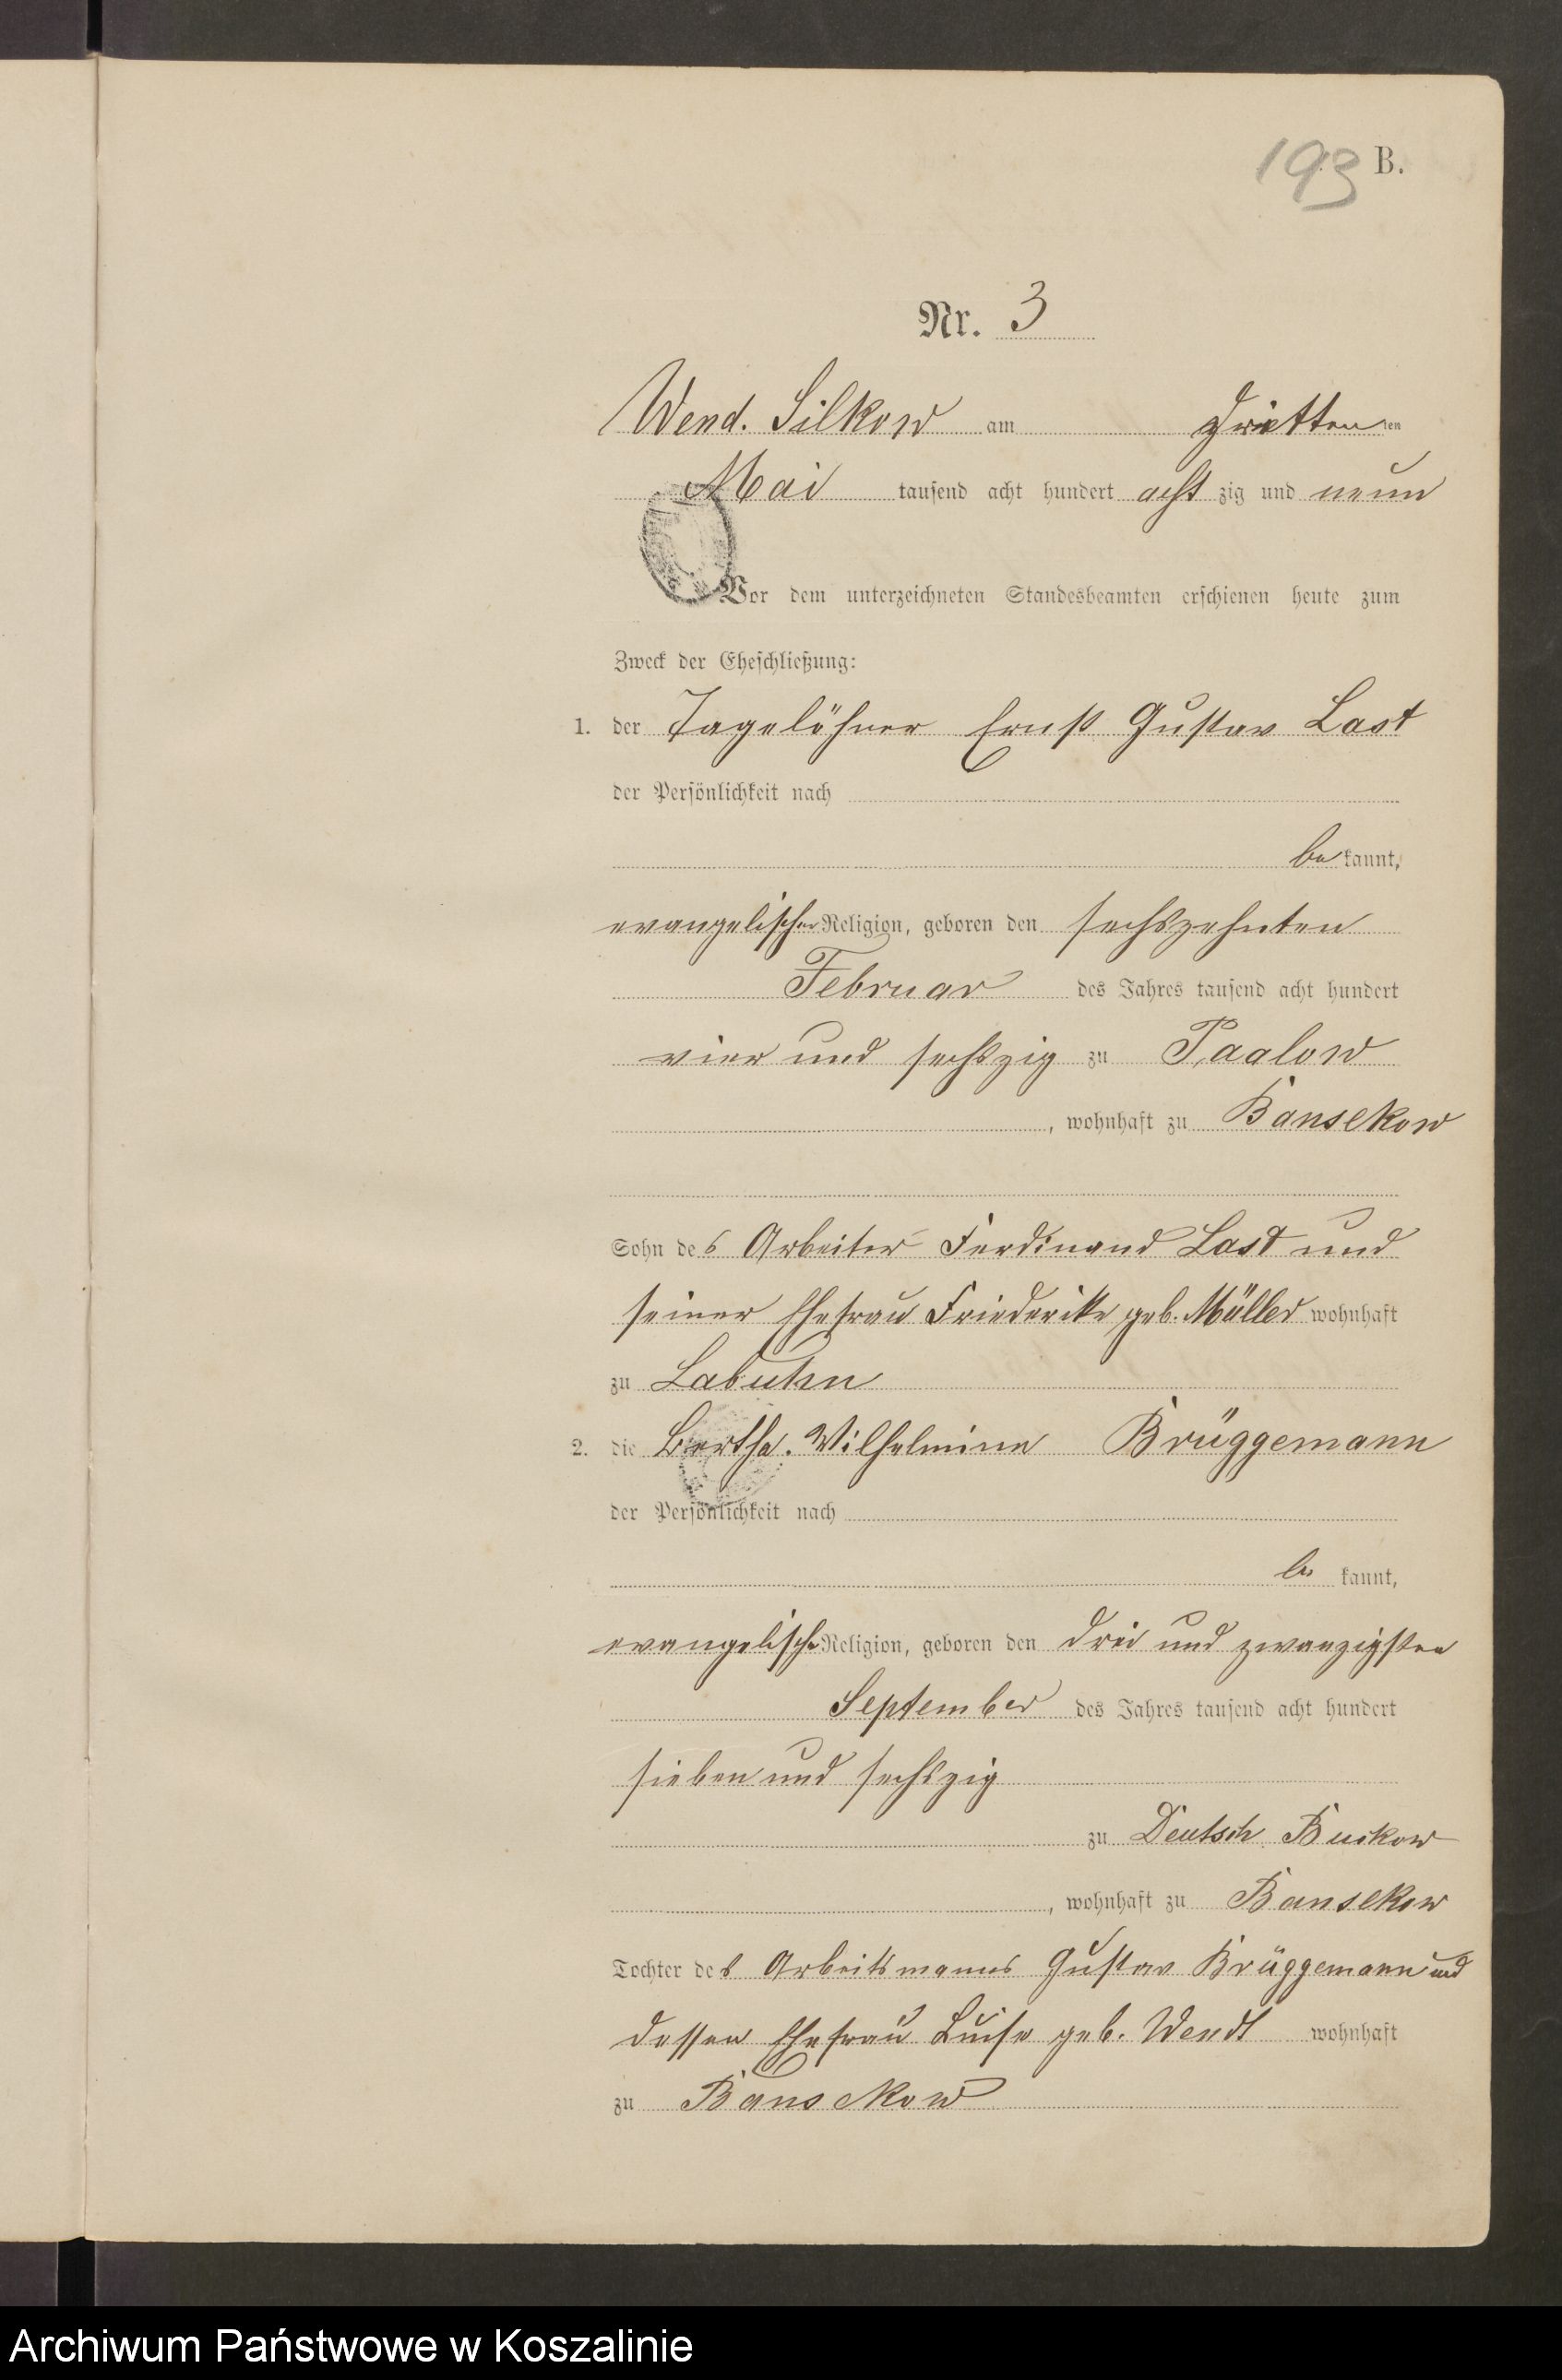 193 B.
Nr. 3
Wend. Silkow am dritten ten
Mai tausend acht hundert acht zig und neun
Vor dem unterzeichneten Standesbeamten erschienen heute zum
Zweck der Eheschließung:
1. der Tagelöhner Ernst Gustav Last
der Persönlichkeit nach
be kannt,
evangelischer Religion, geboren den sechszehnten
Februar des Jahres tausend acht hundert
vier und sechszig zu Paalow
, wohnhaft zu Bansekow
Sohn des Arbeiter Ferdinand Last und
seiner Ehefrau Friederike geb. Müller wohnhaft
zu Labuhn
2. die Bertha Wilhelmine Brüggemann
der Persönlichkeit nach
be kannt,
evangelischer Religion, geboren den drei und zwanzigsten
September des Jahres tausend acht hundert
sieben und sechszig
zu Deutsch Buckow
, wohnhaft zu Bansekow
Tochter des Arbeitsmanns Gustav Brüggemann und
dessen Ehefrau Luise geb. Wendt wohnhaft
zu Bansekow
Archiwum Państwowe w Koszalinie